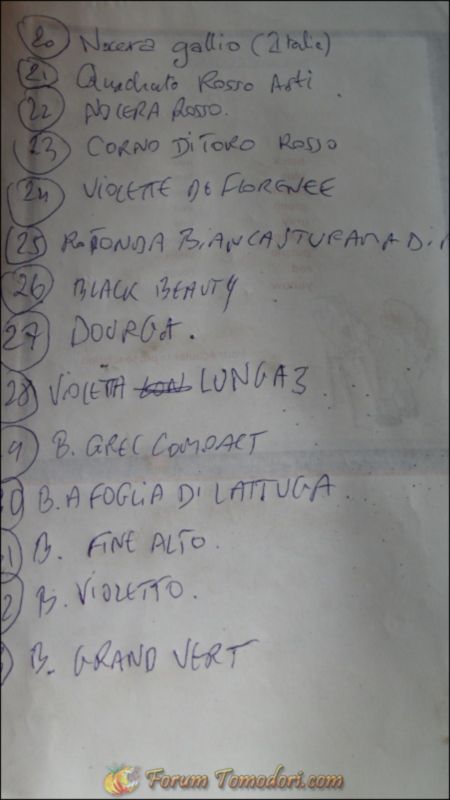 20 Nocera gallio (Italie)
21 Quadrato Rosso Asti
22 NOCERA ROSSO.
23 CORNO DI TORO ROSSO
24 VIOLETTE DE FLORENCE
25 ROTONDA BIANCA SFUMATA DI
26 BLACK BEAUTY
27 DOURGA.
28 VIOLETTA LUNGA 3
9 B. GREC COMPACT
0 B. A FOGLIA DI LATTUGA.
1 B. FINE ALTO.
2 B. VIOLETTO.
B. GRAND VERT
Forum Tomodori.com